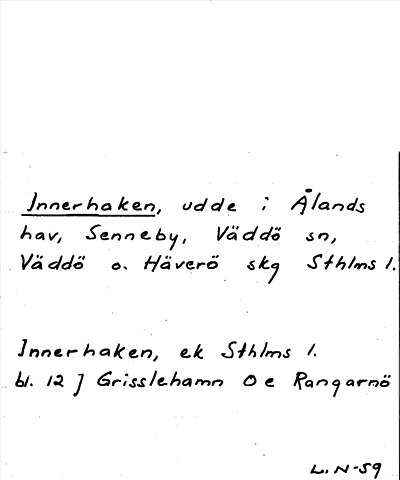 Innerhaken, udde i Ålands
hav, Senneby, Väddö sn,
Väddö o. Häverö skg Sthlms l.
Innerhaken, ek Sthlms l.
bl. 12 J Grisslehamn O e Rangarnö
L. N-59